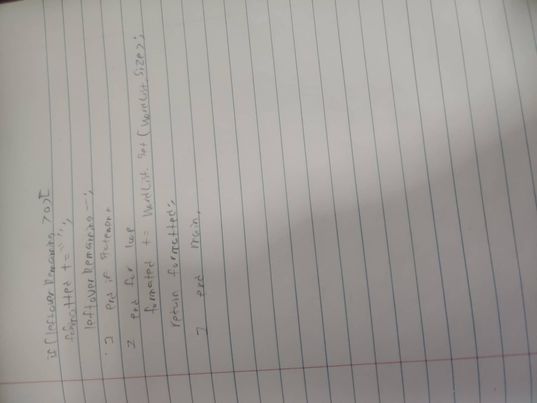 if (leftover Remaining > 0) {
formatted += " ";
leftover Remaining --;
} end if statement
} end for loop
formatted += WordList. get (WordList. size);
return formatted;
} end main,